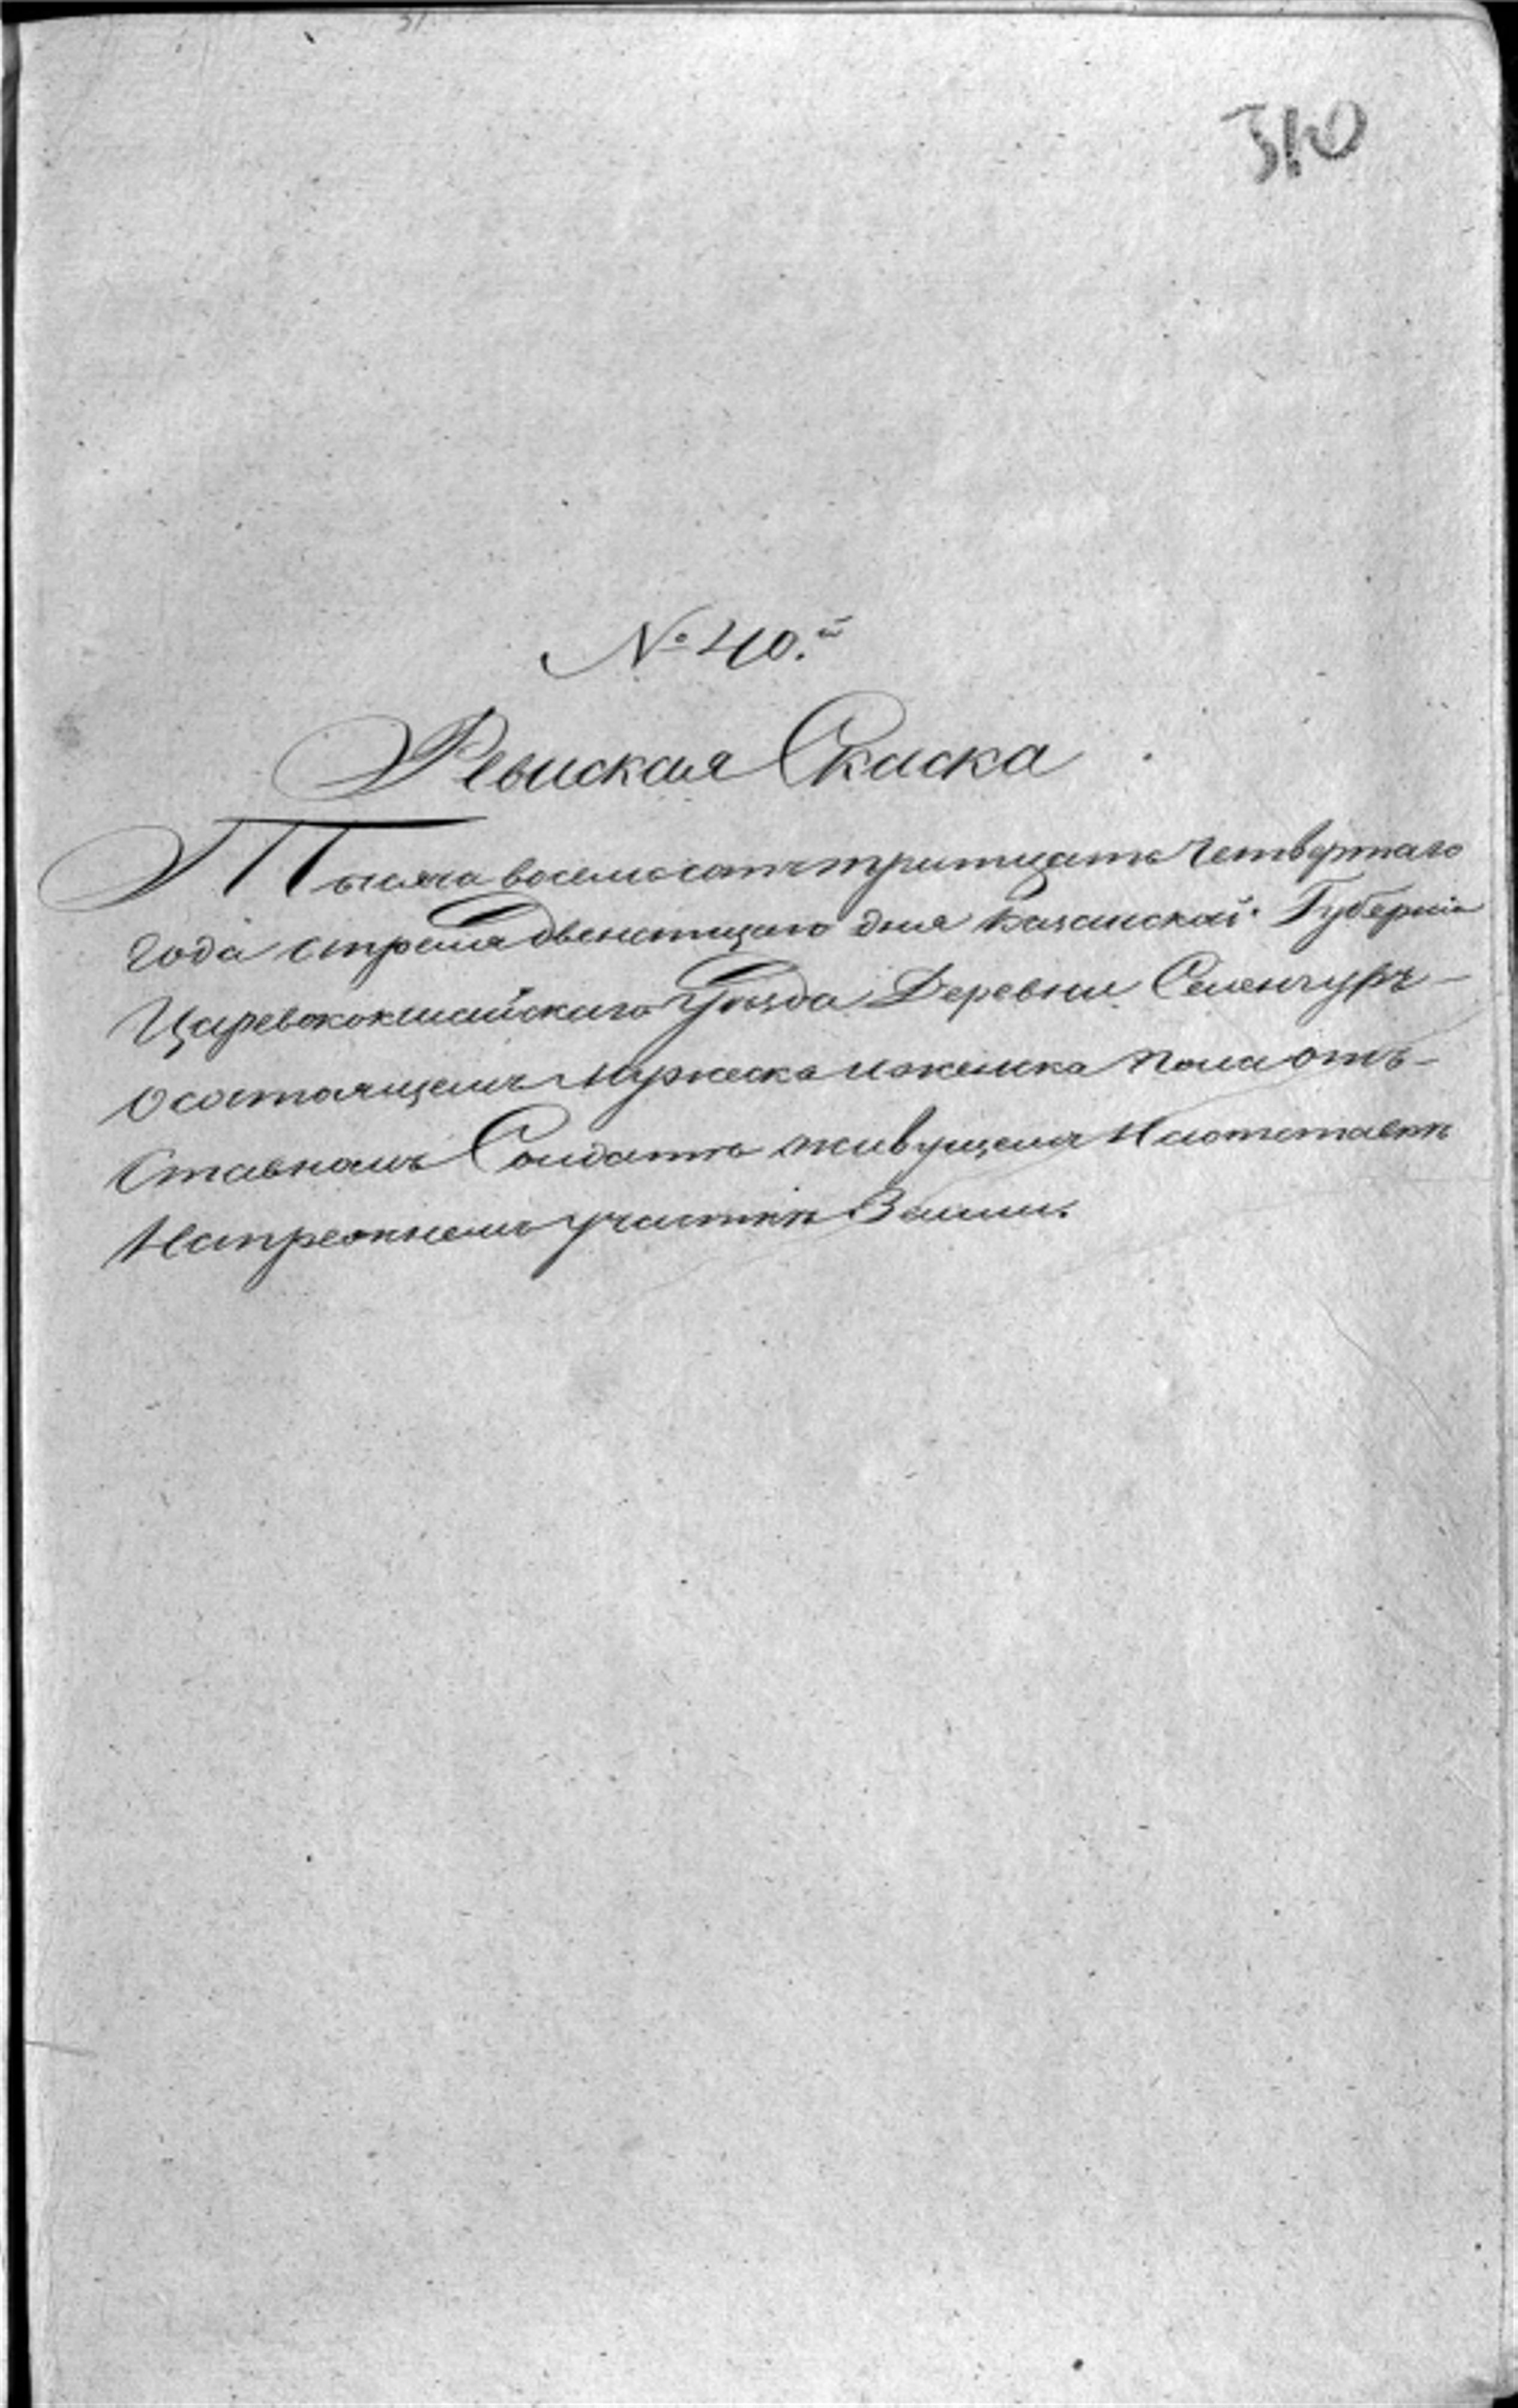 310
№ 40.й
Ревиская Скаска
Тысяча восемьсотъ тритцать Четвертаго
Года Апреля двенатцаго дня Казанской Губернiи
Царевококшайскаго Уѣзда Деревни Семенчуръ
О состоящемъ Мужеска и женска Пола отъ-
Ставномъ Солдатѣ живущемъ
Напрежнемъ участкѣ Земли.